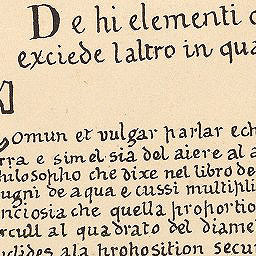 De hi elementi
exciede laltro in qua
Comun et vulgar parlar ech
rra e simel sia del aiere al a
hilosopho che dixe nel libro de
ugni de aqua e cussi multipli
nciosia che quella proportio
rcull al quadrato del diame
uclides ala prohosition secun